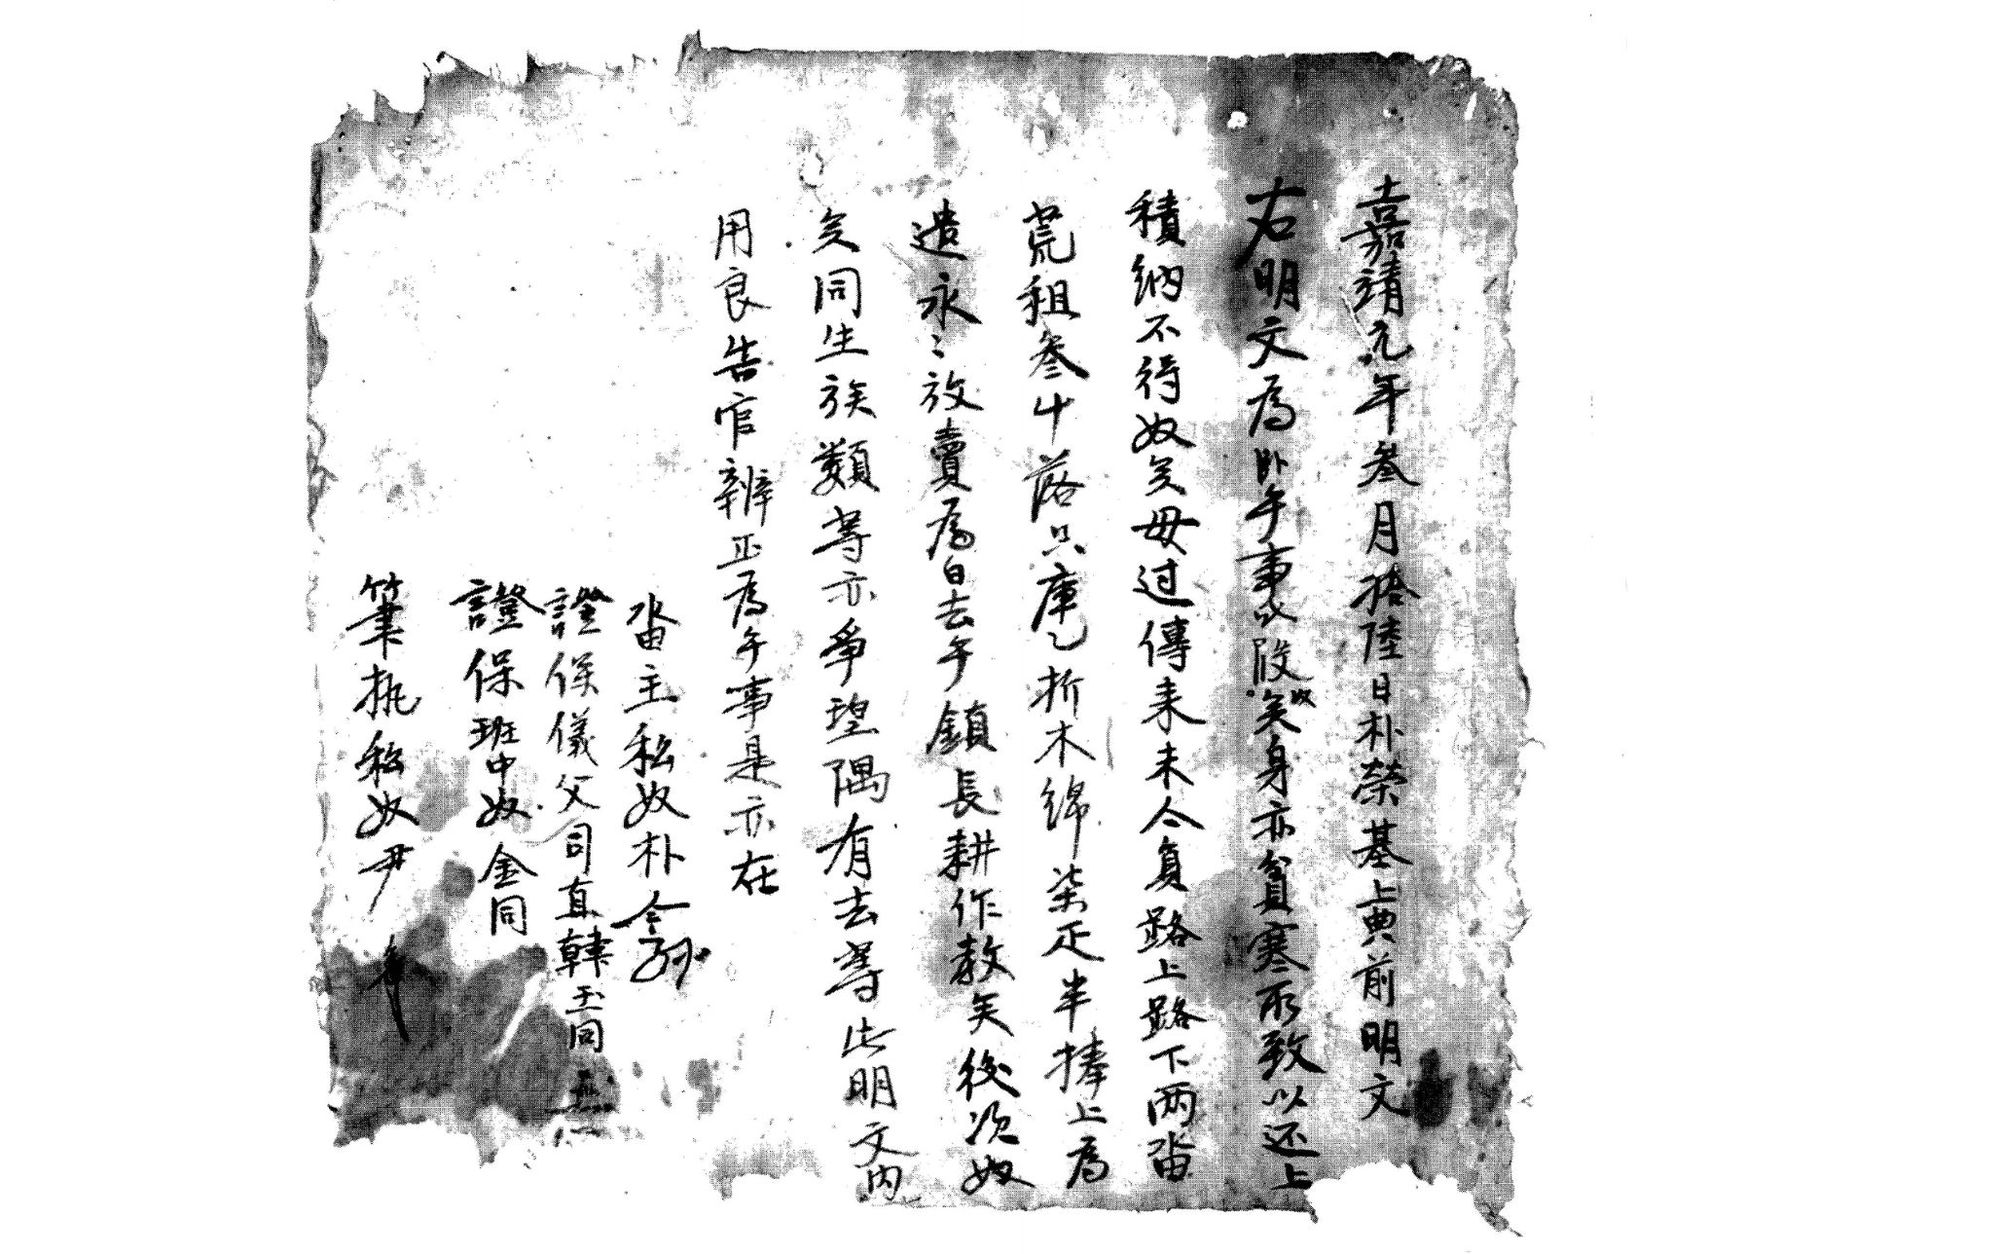 嘉靖元年叁月拾陸日朴榮基上典前明文
右明文爲卧乎事叱段奴矣身亦貧寒所致以还上
積納不得奴矣母过傳来未令員路上路下両畓
荒租叁斗落只庫乙折木綿柒疋半捧上爲
遣永〻放賣爲白去乎鎮長耕作教矣後次奴
矣同生族類等亦爭望隅有去等此明文内
用良告官辨正爲乎事是亦在
畓主私奴朴今孫
證保儀父司直韓玉同
證保班中奴金同
筆執私奴尹